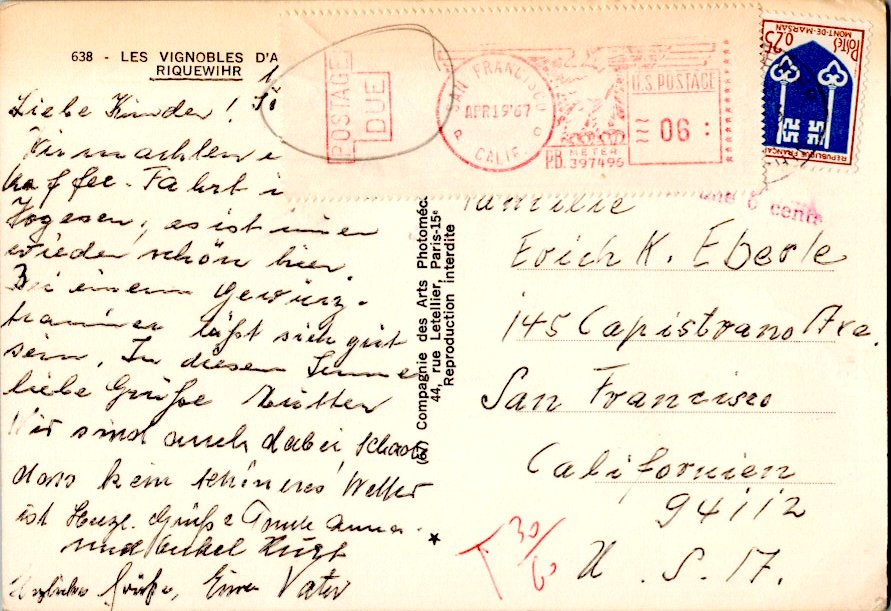 638 - LES VIGNOBLES D'A
RIQUEWIHR
Liebe Kinder!
Wir machten
Kaffee-Fahrt i
Vogesen, es ist immer
wieder schön hier.
Bei einem Gewürz-
traminer läßt sich gut
sein. In diesem Sinne
liebe Grüße Mutter
Wir sind auch dabei schade
dass kein schöneres Wetter
ist Herzl. Grüße Tante Anna
und Onkel
Herzliche Grüße, Euer Vater
Compagnie des Arts Photoméc
44, rue Letellier, Paris-15e
Reproduction interdite
POSTAGE
DUE
SAN FRANCISCO
APR 19 '67
CALIF
P.B. METER
397496
U.S. POSTAGE
06
Postes
0,25
MONT-DE-MARSAN
REPUBLIQUE FRANÇAISE
6 cents
Familie
Erich K. Eberle
145 Capistrano Ave.
San Francisco
Californien
94112
U.S.A.
T 30/60